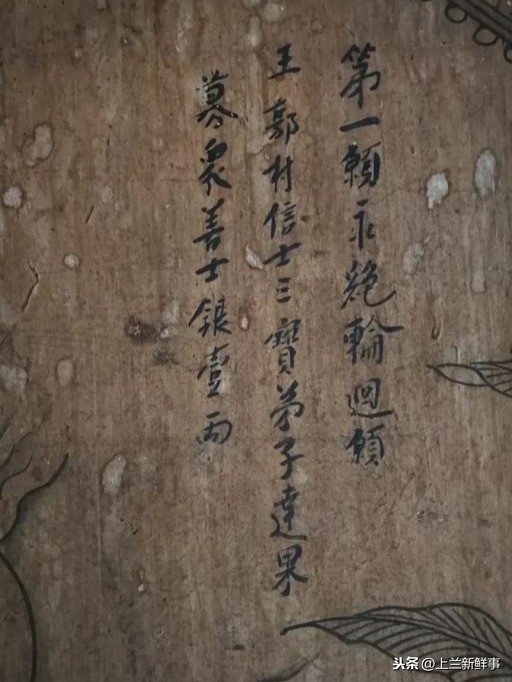 第一願永絶輪迴願
王郭村信士三寶弟子達果
募眾善士銀壹両
头条@上兰新鲜事